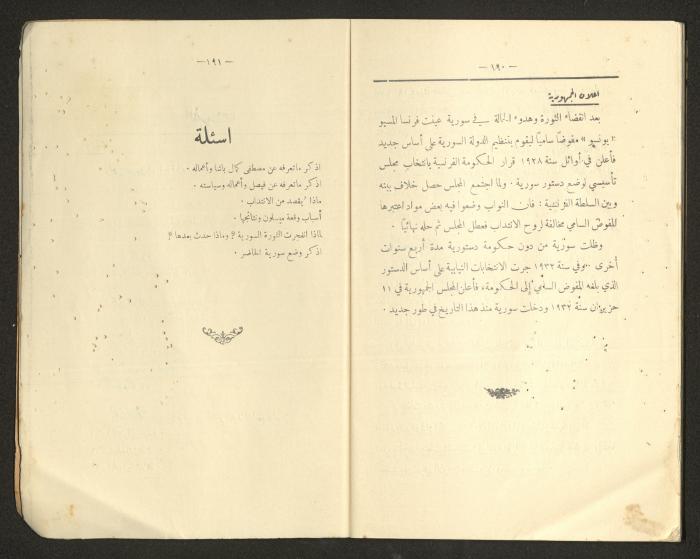 — ١٩٠ —
اعلان الجمهورية
بعد انقضاء الثورة وهدوء الحالة في سورية عينت فرنسا المسيو
« بونسو » مفوضاً سامياً ليقوم بتنظيم الدولة السورية على أساس جديد
فأعلن في أوائل سنة ١٩٢٨ قرار الحكومة الفرنسية بانتخاب مجلس
تأسيسي لوضع دستور سورية . ولما اجتمع المجلس حصل خلاف بينه
وبين السلطة الفرنسية : فان النواب وضعوا فيه بعض مواد اعتبرها
المفوض السامي مخالفة لروح الانتداب فعطل المجلس ثم حله نهائياً .
وظلت سورية من دون حكومة دستورية مدة أربع سنوات
أخرى . وفي سنة ١٩٣٢ جرت الانتخابات النيابية على أساس الدستور
الذي بلغه المفوض السامي إلى الحكومة، فأعلن المجلس الجمهورية في ١١
حزيران سنة ١٩٣٢ ودخلت سورية منذ هذا التاريخ في طور جديد .
— ١٩١ —
اسئلة
اذكر ماتعرفه عن مصطفى كمال باشا وأعماله .
اذكر ماتعرفه عن فيصل وأعماله وسياسته .
ماذا يُقصد من الانتداب .
أسباب وقعة ميسلون ونتائجها .
لماذا انفجرت الثورة السورية ؟ وماذا حدث بعدها ؟
اذكر وضع سورية الحاضر .